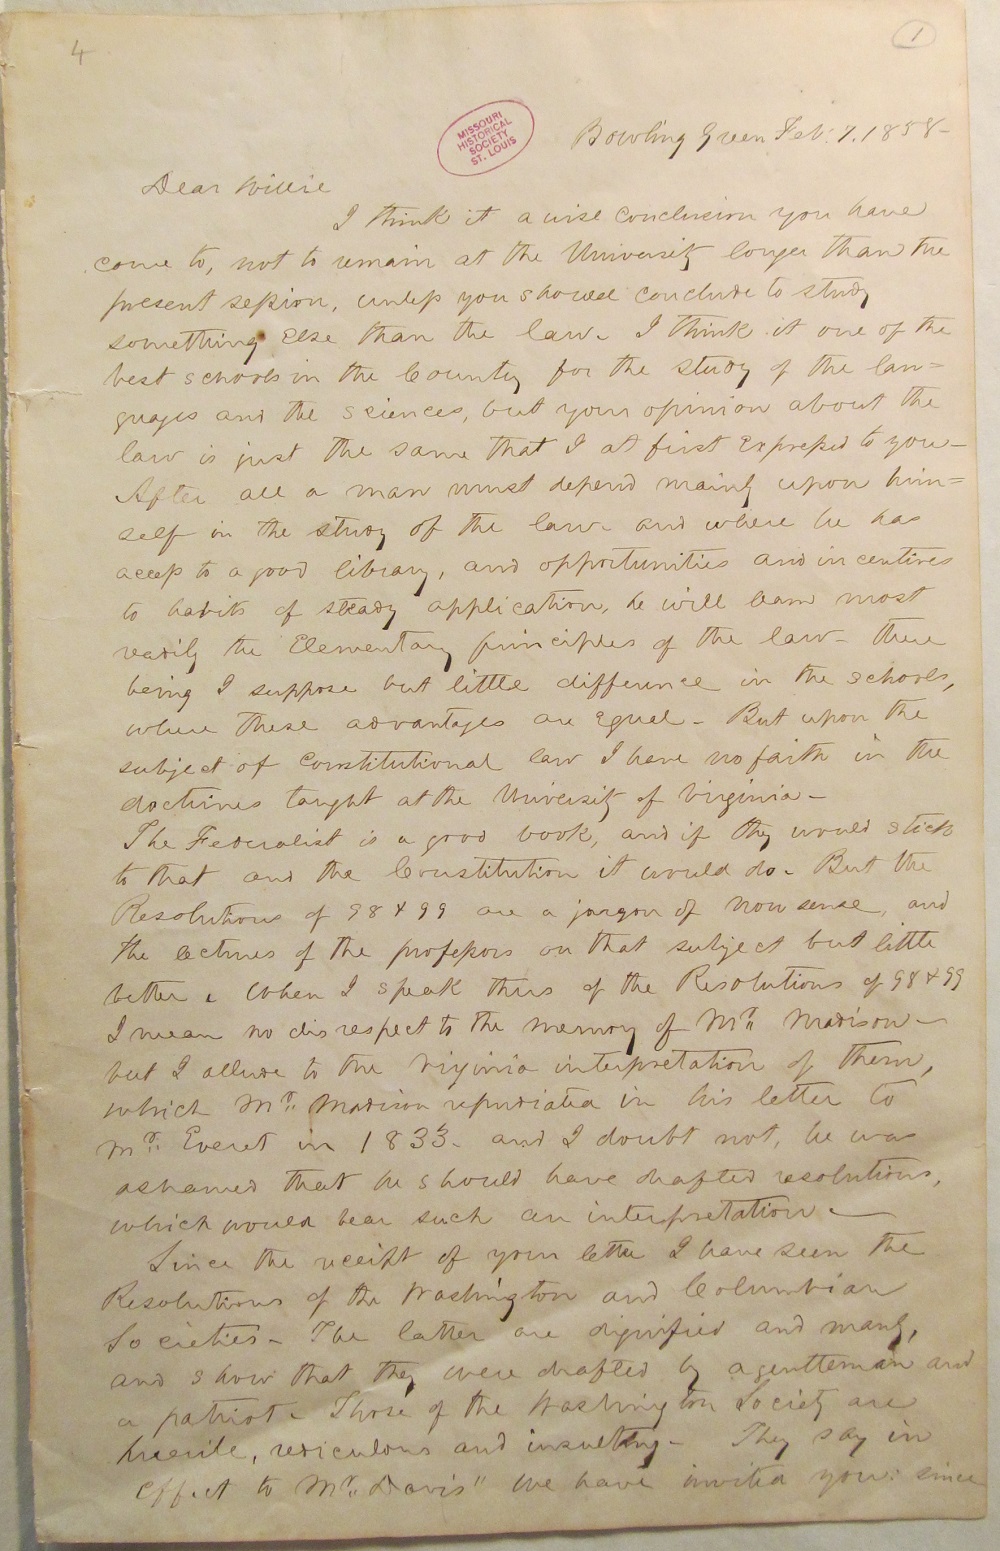 4
1
MISSOURI
HISTORICAL
SOCIETY
ST. LOUIS
Bowling Green Feb. 7. 1858-
Dear Willie
I think it a wise conclusion you have
come to, not to remain at the University longer than the
present session, unless you should conclude to study
something Else than the law. I think it one of the
best schools in the County for the study of the lan=
guages and the sciences, but your opinion about the
law is just the same that I at first Expressed to you-
After all a man must depend mainly upon him=
self in the study of the law and where he has
access to a good library, and opportunities and incentives
to habits of steady application, he will learn most
readily the Elementary principles of the law- there
being I suppose but little difference in the schools,
where these advantages are Equal- But upon the
subject of Constitutional law I have no faith in the
doctrines taught at the University of Virginia-
The Federalist is a good book, and if they would stick
to that and the Constitution it would do. But the
Resolutions of 98 & 99 are a jargon of nonsense, and
the lectures of the professors on that subject but little
better. When I speak thus of the Resolutions of 98 & 99
I mean no disrespect to the memory of Mr. Madison-
but I allude to the Virginia interpretation of them,
which Mr. Madison repudiated in his letter to
Mr. Everet in 1833- and I doubt not, he was
ashamed that he should have drafted resolutions,
which would bear such an interpretation.
Since the receipt of your letter I have seen the
Resolutions of the Washington and Columbian
Societies- The latter are dignified and manly,
and show that they were drafted by a gentleman and
a patriot- Those of the Washington Society are
puerile, rediculous and insulting- They say in
effect to Mr. Davis "We have invited you: since